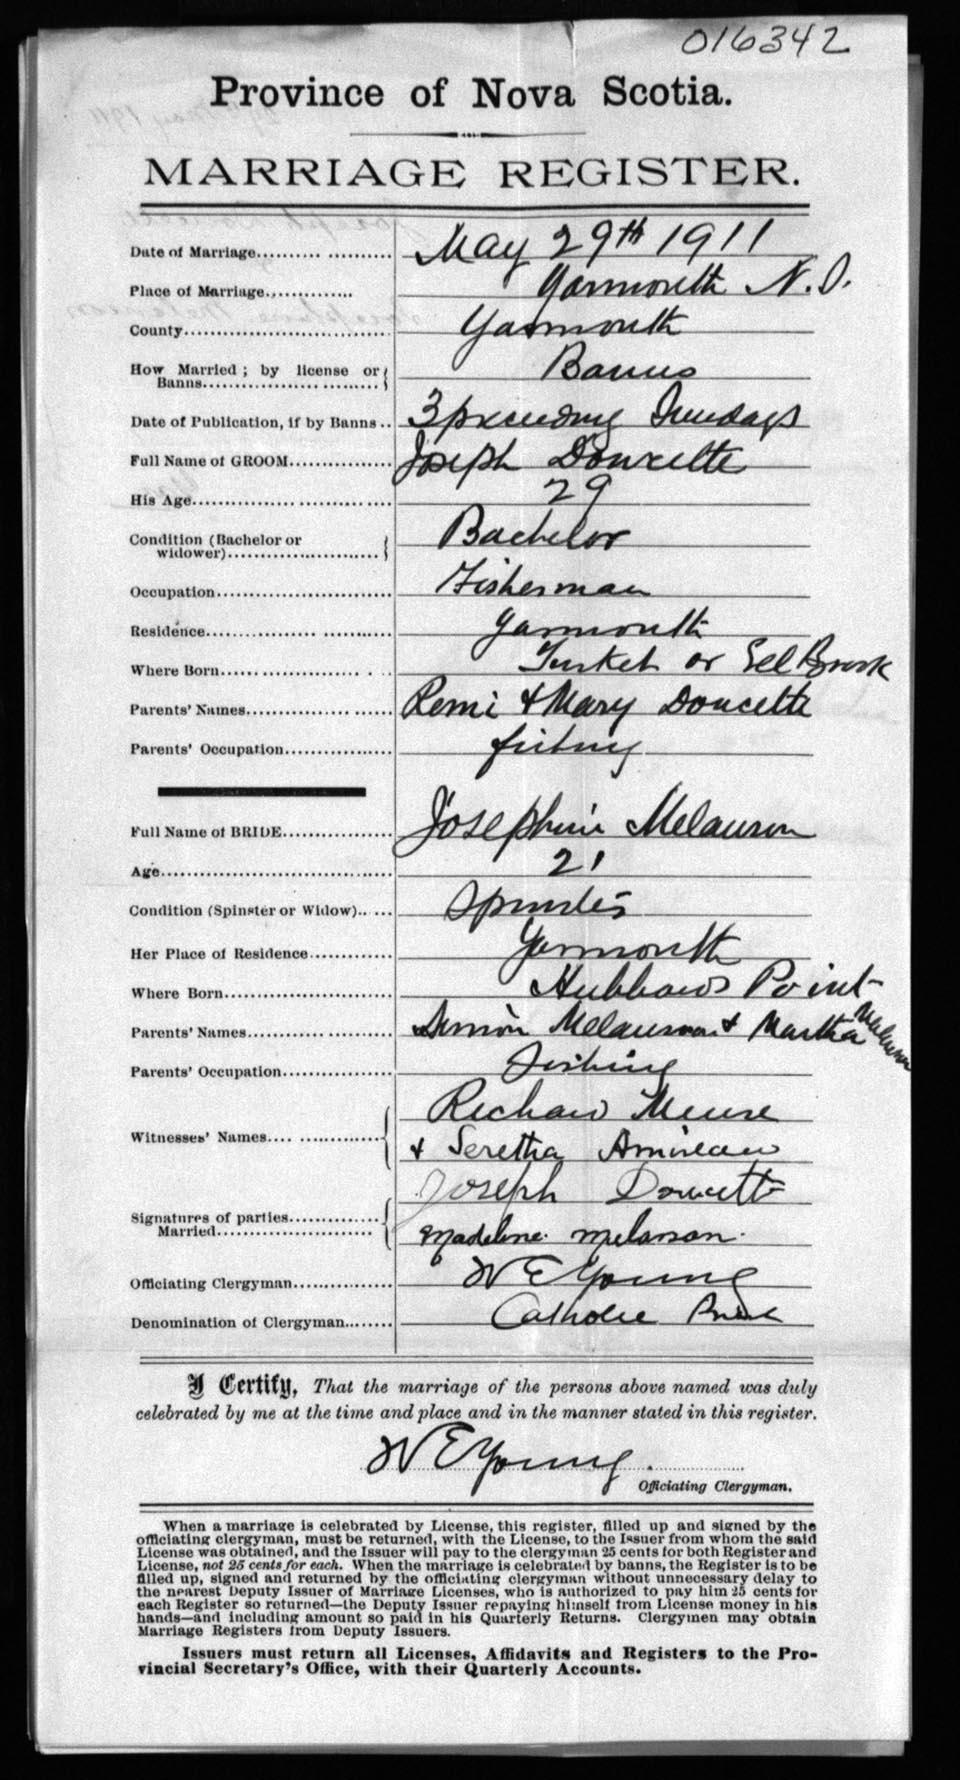 016342
Province of Nova Scotia.
MARRIAGE REGISTER.
Date of Marriage.......... .......... May 29th 1911
Place of Marriage.............. Yarmouth N.S.
County................................ Yarmouth
How Married ; by license or
Banns..................... ......... Banns
Date of Publication, if by Banns .. 3 preceeding Sundays
Full Name of GROOM................ Joseph Doucette
His Age....................... ........ 29
Condition (Bachelor or
widower)........................... Bachelor
Occupation........................... Fisherman
Residence................ .......... Yarmouth
Where Born...... ................ . . Tusket or Eel Brook
Parents' Names................. ...... Remi & Mary Doucette
Parents' Occupation................. fishing
Full Name of BRIDE................. Josephine Melanson
Age..................................... 21
Condition (Spinster or Widow).. .... Spinster
Her Place of Residence............. Yarmouth
Where Born.......................... Hubbards Point
Parents' Names............ .......... Simon Melanson & Martha Melanson
Parents' Occupation................. fishing
Witnesses' Names.... ............... Richard Meuse
& Seretha Amireau
Signatures of parties............... Joseph Doucette
Married........................ Madeline Melanson.
Officiating Clergyman............... W E Young
Denomination of Clergyman........ Catholic Priest
I Certify, That the marriage of the persons above named was duly
celebrated by me at the time and place and in the manner stated in this register.
W E Young
Officiating Clergyman.
When a marriage is celebrated by License, this register, filled up and signed by the
officiating clergyman, must be returned, with the License, to the Issuer from whom the said
License was obtained, and the Issuer will pay to the clergyman 25 cents for both Register and
License, not 25 cents for each. When the marriage is celebrated by banns, the Register is to be
filled up, signed and returned by the officiating clergyman without unnecessary delay to
the nearest Deputy Issuer of Marriage Licenses, who is authorized to pay him 25 cents for
each Register so returned—the Deputy Issuer repaying himself from License money in his
hands—and including amount so paid in his Quarterly Returns. Clergymen may obtain
Marriage Registers from Deputy Issuers.
Issuers must return all Licenses, Affidavits and Registers to the Pro-
vincial Secretary's Office, with their Quarterly Accounts.